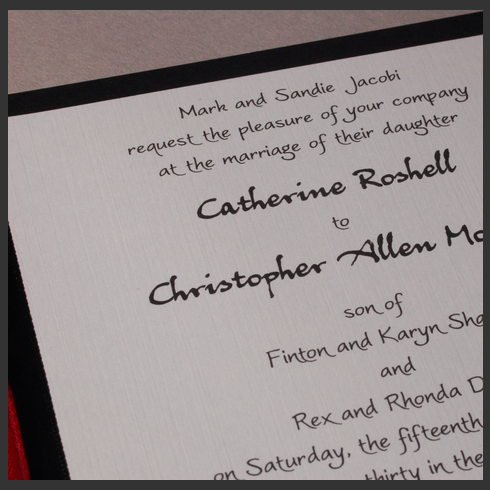 Mark and Sandie Jacobi
request the pleasure of your company
at the marriage of their daughter
Catherine Roshell
to
Christopher Allen
son of
Finton and Karyn
and
Rex and Rhonda
on Saturday, the fifteenth
thirty in the